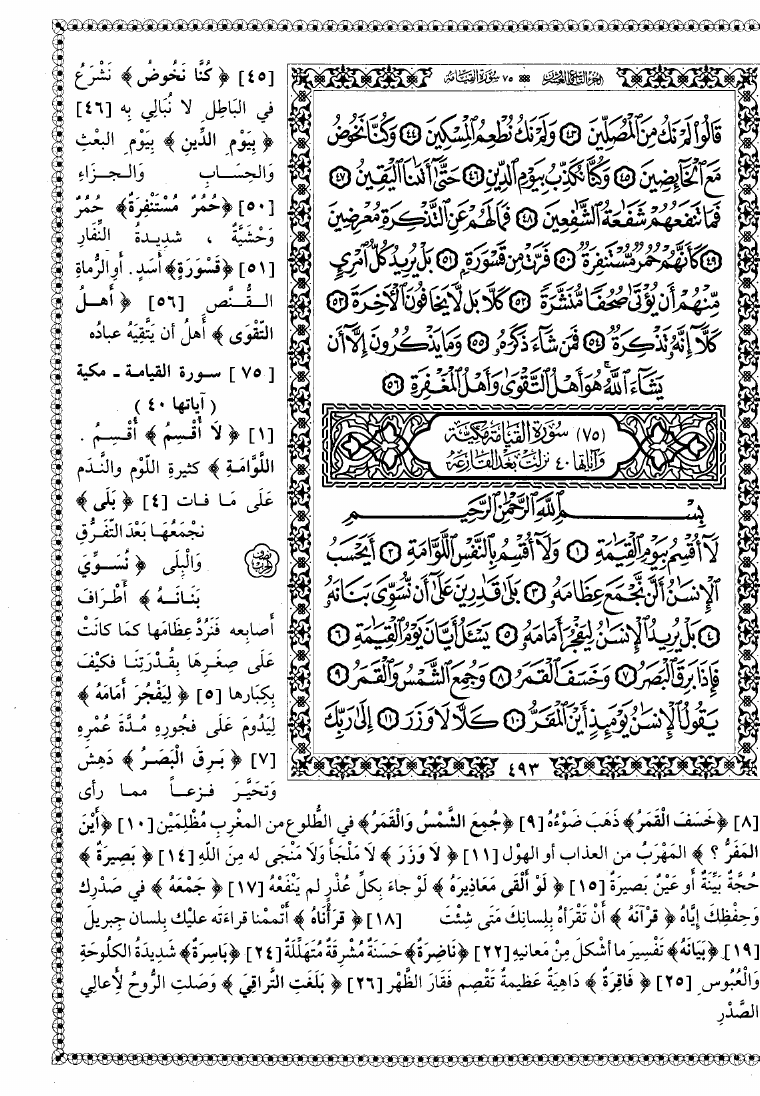 الجزء التاسع والعشرون ٧٥ سورة القيامة
قَالُوا۟ لَمْ نَكُ مِنَ ٱلْمُصَلِّينَ ٤٣ وَلَمْ نَكُ نُطْعِمُ ٱلْمِسْكِينَ ٤٤ وَكُنَّا نَخُوضُ
مَعَ ٱلْخَآئِضِينَ ٤٥ وَكُنَّا نُكَذِّبُ بِيَوْمِ ٱلدِّينِ ٤٦ حَتَّىٰٓ أَتَىٰنَا ٱلْيَقِينُ ٤٧
فَمَا تَنفَعُهُمْ شَفَٰعَةُ ٱلشَّٰفِعِينَ ٤٨ فَمَا لَهُمْ عَنِ ٱلتَّذْكِرَةِ مُعْرِضِينَ
٤٩ كَأَنَّهُمْ حُمُرٌ مُّسْتَنفِرَةٌ ٥٠ فَرَّتْ مِن قَسْوَرَةٍ ٥١ بَلْ يُرِيدُ كُلُّ ٱمْرِئٍ
مِّنْهُمْ أَن يُؤْتَىٰ صُحُفًا مُّنَشَّرَةً ٥٢ كَلَّا بَل لَّا يَخَافُونَ ٱلْـَٔاخِرَةَ ٥٣
كَلَّآ إِنَّهُۥ تَذْكِرَةٌ ٥٤ فَمَن شَآءَ ذَكَرَهُۥ ٥٥ وَمَا يَذْكُرُونَ إِلَّآ أَن
يَشَآءَ ٱللَّهُ ۚ هُوَ أَهْلُ ٱلتَّقْوَىٰ وَأَهْلُ ٱلْمَغْفِرَةِ ٥٦
(٧٥) سورة القيامة مكية
وآياتها ٤٠ نزلت بعد القارعة
بِسْمِ ٱللَّهِ ٱلرَّحْمَٰنِ ٱلرَّحِيمِ
لَآ أُقْسِمُ بِيَوْمِ ٱلْقِيَٰمَةِ ١ وَلَآ أُقْسِمُ بِٱلنَّفْسِ ٱللَّوَّامَةِ ٢ أَيَحْسَبُ
ٱلْإِنسَٰنُ أَلَّن نَّجْمَعَ عِظَامَهُۥ ٣ بَلَىٰ قَٰدِرِينَ عَلَىٰٓ أَن نُّسَوِّىَ بَنَانَهُۥ
٤ بَلْ يُرِيدُ ٱلْإِنسَٰنُ لِيَفْجُرَ أَمَامَهُۥ ٥ يَسْـَٔلُ أَيَّانَ يَوْمُ ٱلْقِيَٰمَةِ ٦
فَإِذَا بَرِقَ ٱلْبَصَرُ ٧ وَخَسَفَ ٱلْقَمَرُ ٨ وَجُمِعَ ٱلشَّمْسُ وَٱلْقَمَرُ ٩
يَقُولُ ٱلْإِنسَٰنُ يَوْمَئِذٍ أَيْنَ ٱلْمَفَرُّ ١٠ كَلَّا لَا وَزَرَ ١١ إِلَىٰ رَبِّكَ
٤٩٣
[٤٥] ﴿ كُنَّا نَخُوضُ ﴾ نَشْرَعُ
في البَاطِلِ لا نُبَالِي بِهِ [٤٦]
﴿ بِيَوْمِ الدِّينِ ﴾ بِيَوْمِ البَعْثِ
وَالحِسَابِ وَالجَزَاءِ
[٥٠] ﴿حُمُرٌ مُسْتَنْفِرَةٌ﴾ حُمُرٌ
وَحْشَيَّةٌ ، شَدِيدةُ النِّفَارِ
[٥١] ﴿قَسْوَرَةٍ﴾ أَسَدٍ. أو الرُّماةِ
القُنَّص [٥٦] ﴿ أَهلُ
التَّقْوَى ﴾ أَهلُ أن يَتَّقِيَهُ عباده
[ ٧٥ ] سورة القيامة ـ مكية
( آياتها ٤٠ )
[١] ﴿ لاَ أُقْسِمُ ﴾ أُقْسِمُ .
اللَّوَّامَةِ ﴾ كثيرةِ اللّوْم والنَّدَم
عَلَى مَا فات [٤] ﴿ بَلَى ﴾
نجْمَعُهَا بَعْدَ التَّفَرُّقِ
وَالْبِلَى ﴿ نُسَوِّيَ
بَنَانَهُ ﴾ أَطْرَافَ
أصابِعه فَنَرُدَّ عِظَامَها كمَا كانَتْ
عَلَى صِغَرِهَا بِقُدْرَتِنَا فكيْفَ
بِكِبَارها [٥] ﴿ لِيَفْجُرَ أَمَامَهُ ﴾
لِيَدُومَ عَلَى فجُورِهِ مُدَّةَ عُمْرِهِ
[٧] ﴿ بَرِقَ الْبَصَرُ ﴾ دَهِشَ
وَتَحَيَّرَ فزعاً مما رأى
[٨] ﴿خَسَفَ القَمَرُ﴾ ذَهَبَ ضَوْءُهُ [٩] ﴿جُمِعَ الشَّمْسُ وَالْقَمَرُ﴾ في الطُّلوعِ من المغْرِبِ مُظْلِمَيْنِ [١٠] ﴿أَيْنَ
المَفَرُّ ؟ ﴾ المَهْرَبُ من العذابِ أو الهوْل [١١] ﴿ لاَ وَزَرَ ﴾ لاَ مَلْجَأَ وَلاَ مَنْجَى له مِنَ اللَّهِ [١٤] ﴿ بَصِيرَةٌ ﴾
حُجَّةٌ بَيِّنَةٌ أو عَيْنٌ بَصيرَةٌ [١٥] ﴿ لَوْ أَلْقَى مَعَاذِيرَهُ ﴾ لَوْ جاءَ بِكلِّ عُذْرٍ لم يَنْفَعْهُ [١٧] ﴿ جَمْعَهُ ﴾ في صَدْرِك
وَحِفْظِكَ إِيَّاهُ ﴿ قرْآنَهُ ﴾ أَنْ تَقْرَأهُ بِلِسانِكَ مَتَى شِئْتَ [١٨] ﴿ قرَأْنَاهُ ﴾ أَتْممْنا قراءَتَه عليْك بِلسانِ جبريلَ
[١٩] ﴿بَيَانَهُ﴾ تَفْسِيرَ ما أشْكلَ مِنْ معانيهِ [٢٢] ﴿نَاضِرَةٌ﴾ حَسَنَةٌ مُشْرِقَةٌ مُتَهَلِّلَةٌ [٢٤] ﴿بَاسِرَةٌ﴾ شَدِيدَةُ الكلُوحَةِ
وَالْعُبُوسِ [٢٥] ﴿ فَاقِرَةٌ ﴾ دَاهِيَةٌ عظيمةٌ تَقْصِم فقَارَ الظَّهْرِ [٢٦] ﴿ بَلَغَتِ التَّراقِيَ ﴾ وَصَلتِ الرُّوحُ لِأَعالِي
الصَّدْرِ